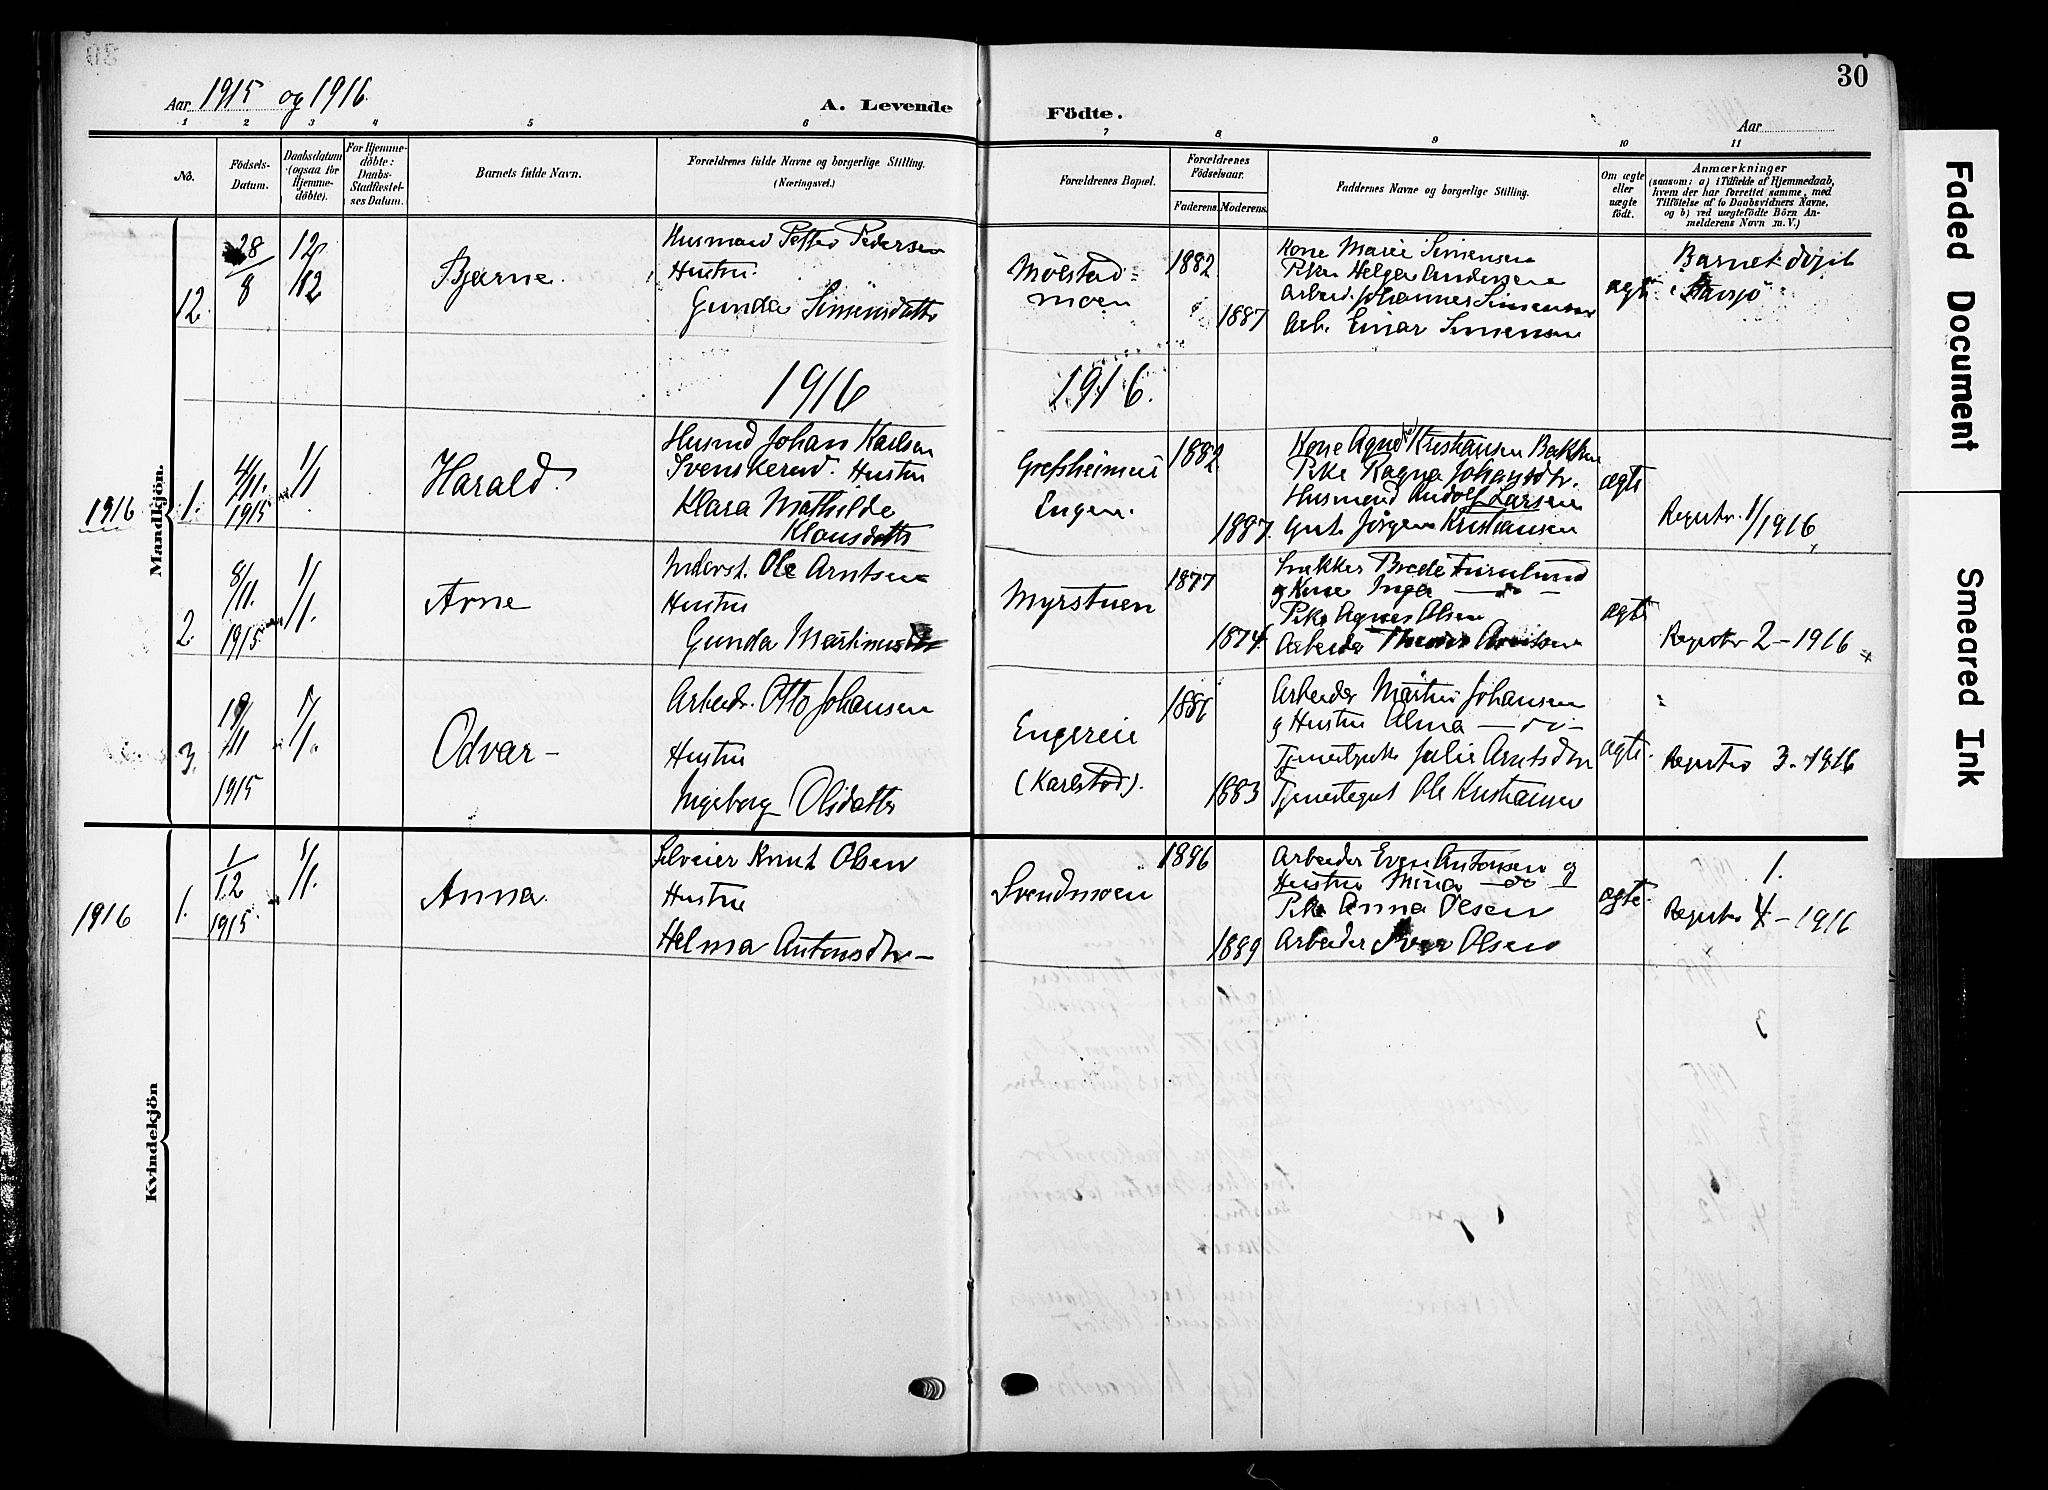 30
Aar 1915 og 1916.
A. Levende Födte.
Aar
1 2 3 4 5 6 7 8 9 10 11
No.
Födsels-
Datum.
Daabsdatum
(ogsaa for
Hjemme-
döbte).
For Hjemme-
döbte:
Daabs-
Stadfæstel-
ses Datum.
Barnets fulde Navn.
Forældrenes fulde Navne og borgerlige Stilling.
(Næringsvei.)
Forældrenes Bopæl.
Forældrenes
Födselsaar.
Faderens.
Moderens.
Faddernes Navne og borgerlige Stilling.
Om ægte
eller
uægte
födt.
Anmærkninger
(saasom: a) i Tilfælde af Hjemmedaab,
hvem der har forrettet samme, med
Tilföielse af to Daabsvidners Navne,
og b) ved uægtefödte Börn An-
melderens Navn m. V.)
Mandkjön.
12.
28/8
12/12
Bjarne.
Husmand Petter Pedersen
Hustru
Gunda Simensdatter
Mölstad-
moen
1882
1887
Kone Marie Simensen
Pike Helga Andersen
Arbeid. Johannes Simensen
Arb. Einar Simensen
ægte
Barnet döpt
i Stavsjö
1916
1916.
1916
1.
4/11.
1915
1/1
Harald.
Husmd Johan Karlsen
Svenskerud. Hustru
Klara Mathilde
Klausdatter
Grefsheimens
Engen.
1882
1887.
Kone Agnes Kristiansen Bakken
Pike Ragna Johansdtr.
Husmand Rudolf Larsen
Gut. Jörgen Kristiansen
ægte
Registr. 1/1916,
2.
8/11.
1915
1/1.
Arne
Ole Arntsen
Hustru
Gunda Martinusdtr
Myrstuen
1877
1874.
Snekker Brede Furulund
og Kone Inga —do—
Pike Agnes Olsen
Arbeider Arntsen
ægte
Registr 2 – 1916
3.
19/11
1915
1/1.
Odvar –
Arbeidr. Otto Johansen
Hustru
Ingeborg Olsdatter
Engereie
(Karlstad).
1886
1883
Arbeider Martin Johansen
og Hustru Alma — do —
Tjenestepike Julie Arntsdtr
Tjenestegut Ole Kristiansen
ægte.
Registr 3. 1916
Kvindekjön
1916
1.
1/12
1915.
1/1.
Anna.
Selveier Knut Olsen
Hustru
Helma Antonsdtr –
Svendmoen
1896
1889
Arbeider Even Antonsen og
Hustru Mina —do—
Pike Anna Olsen
Arbeider Iver Olsen
ægte.
1.
Registr 4 – 1916
Faded Document
Smeared Ink